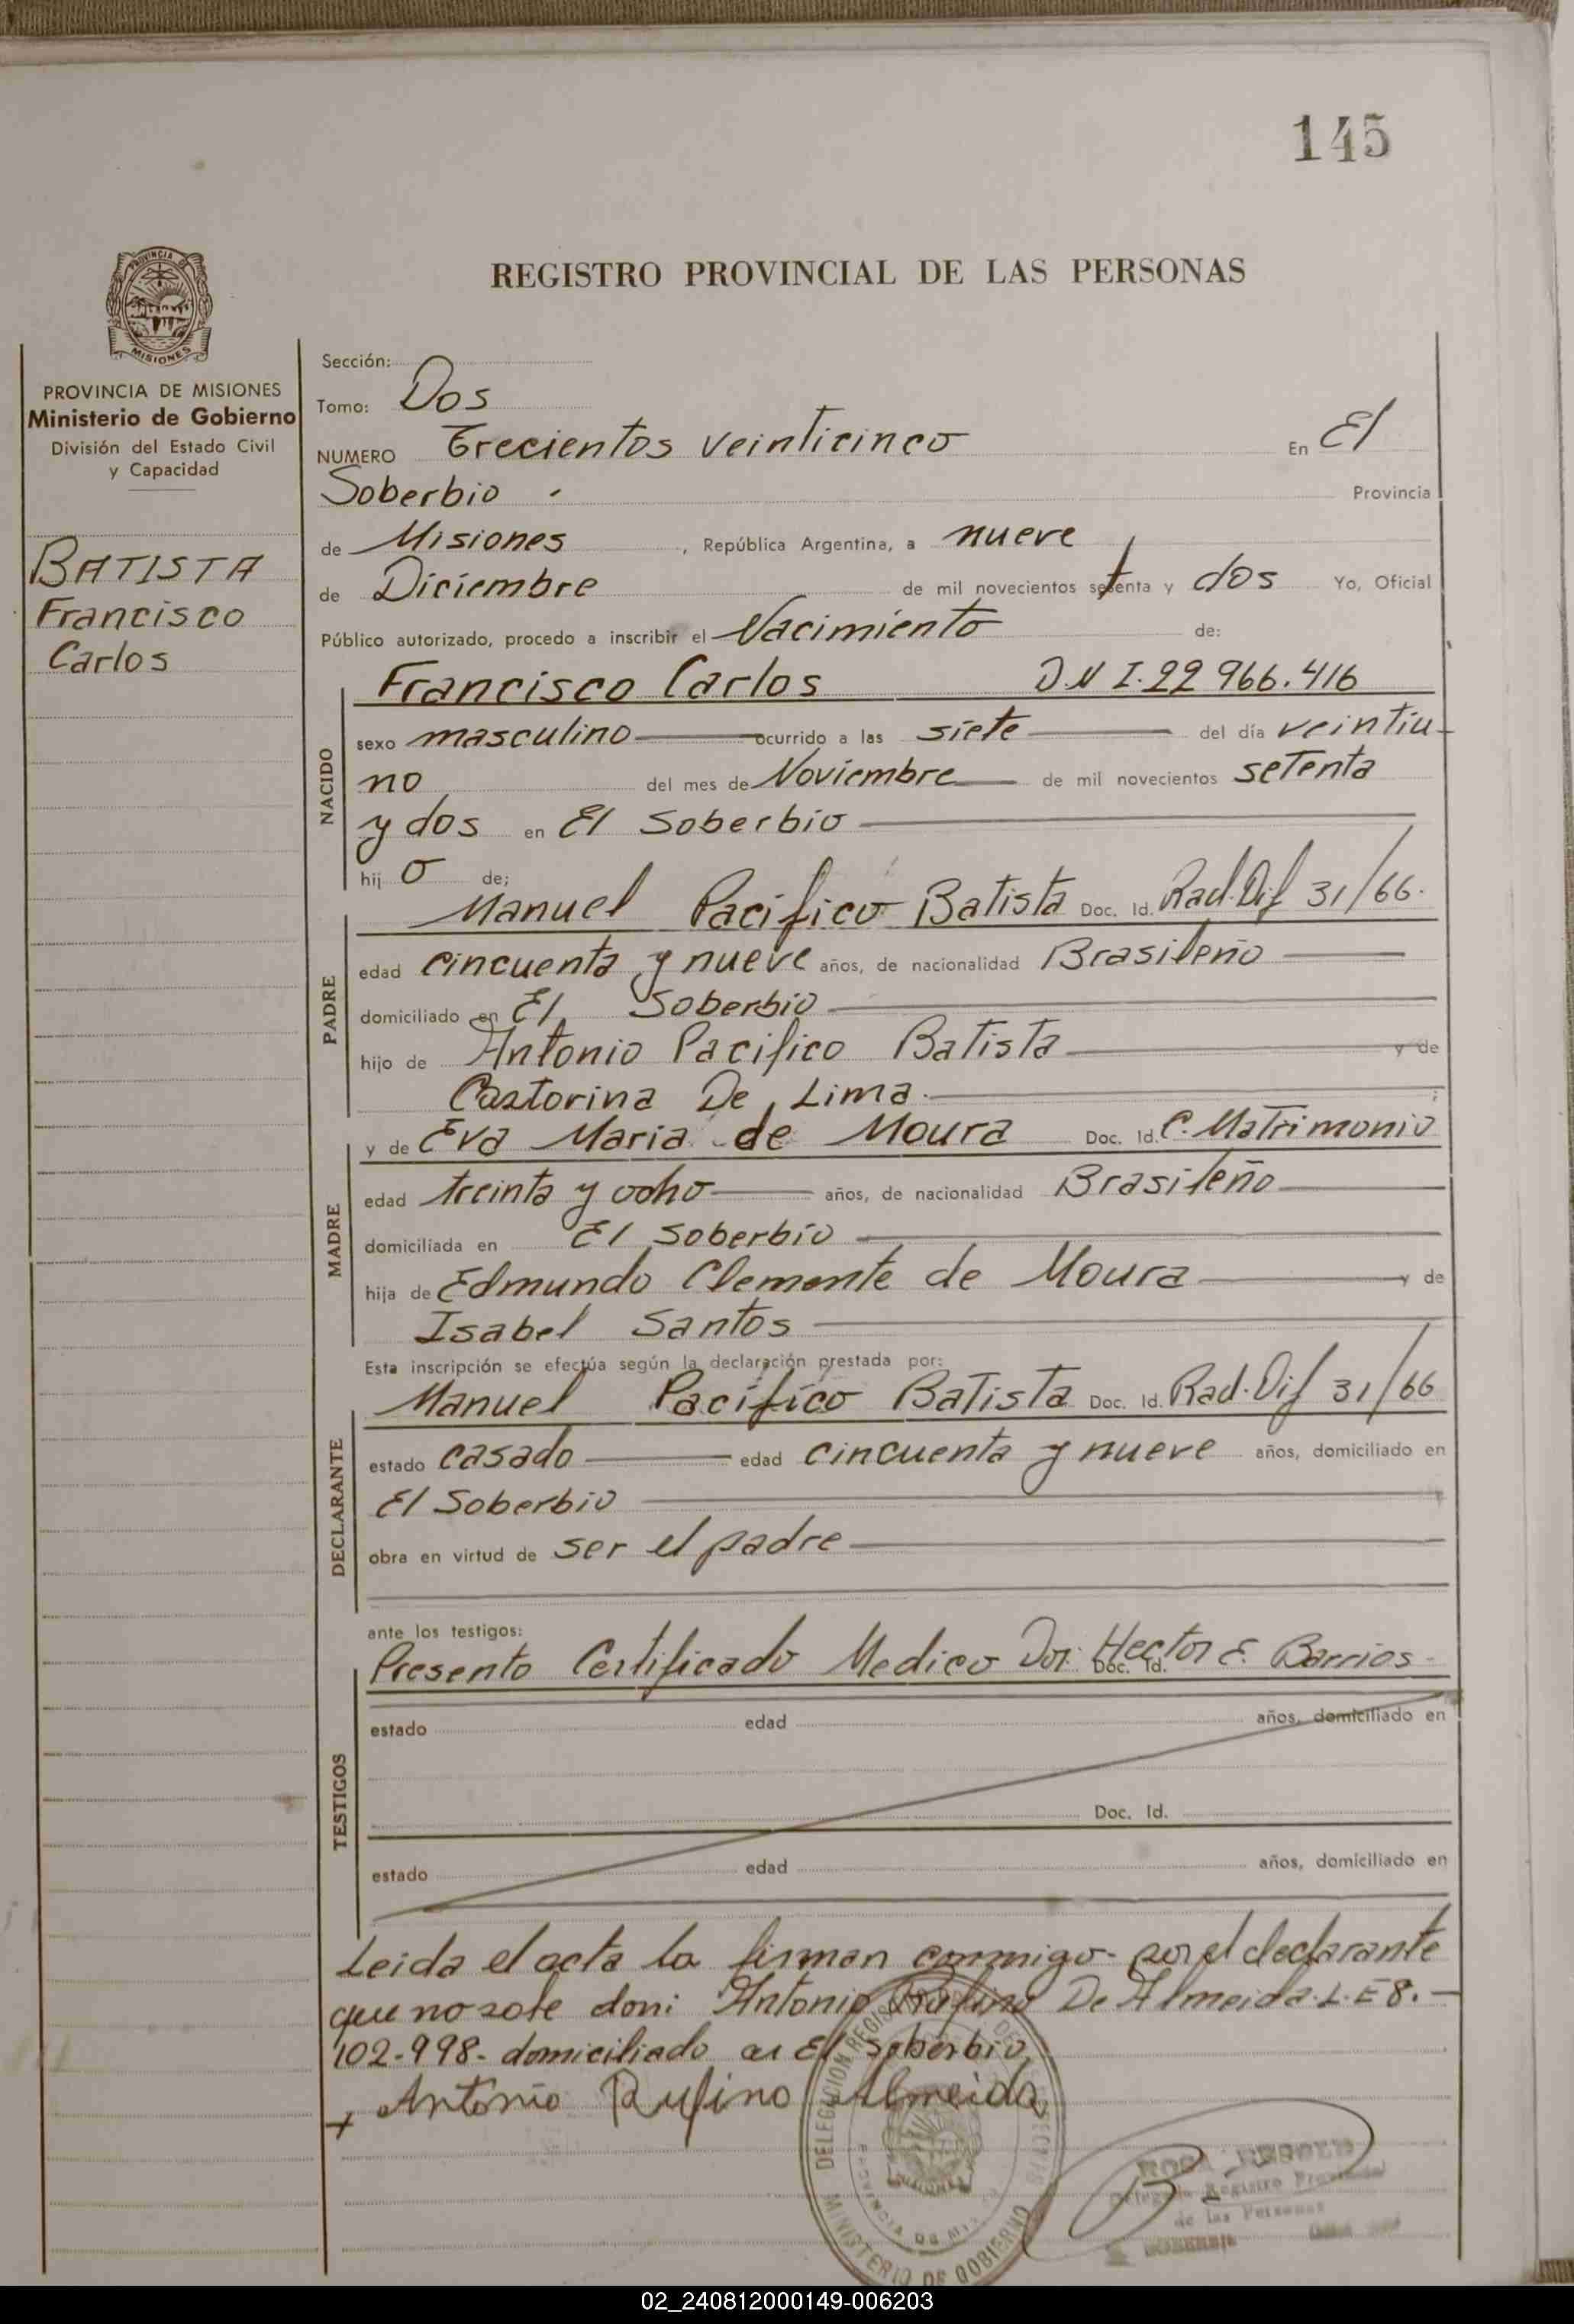 145
PROVINCIA DE
MISIONES
PROVINCIA DE MISIONES
Ministerio de Gobierno
División del Estado Civil
y Capacidad
BATISTA
Francisco
Carlos
REGISTRO PROVINCIAL DE LAS PERSONAS
Sección:
Tomo: Dos
NUMERO Trecientos veinticinco En El
Soberbio . Provincia
de Misiones , República Argentina, a nueve
de Diciembre de mil novecientos setenta y dos Yo, Oficial
Público autorizado, procedo a inscribir el Nacimiento de:
Francisco Carlos D.N.I. 22 966.416
NACIDO
sexo masculino ocurrido a las siete del día veintiu-
no del mes de Noviembre de mil novecientos setenta
y dos en El Soberbio
hij o de;
PADRE
Manuel Pacifico Batista Doc. Id. Rad. Dif 31/66.
edad cincuenta y nueve años, de nacionalidad Brasileño
domiciliado en El Soberbio
hijo de Antonio Pacifico Batista y de
Castorina De Lima. ;
MADRE
y de Eva Maria de Moura Doc. Id. C. Matrimonio
edad treinta y ocho años, de nacionalidad Brasileño
domiciliada en El Soberbio
hija de Edmundo Clemente de Moura y de
Isabel Santos
Esta inscripción se efectúa según la declaración prestada por:
DECLARANTE
Manuel Pacifico Batista Doc. Id. Rad. Dif 31/66
estado casado edad cincuenta y nueve años, domiciliado en
El Soberbio
obra en virtud de ser el padre
ante los testigos:
TESTIGOS
Presento Certificado Medico Dor. Hector E. Barrios-
Doc. Id.
estado edad años, domiciliado en
Doc. Id.
estado edad años, domiciliado en
Leida el acta la firman conmigo- por el declarante
que no sabe don: Antonio Rufino De Almeida. L. E 8.-
102-998- domiciliado en El Soberbio
+ Antonio Rufino Almeida
DELEGACION REGISTRO
MINISTERIO DE GOBIERNO
PROVINCIA DE
ROSA
Registro Provincial
de las Personas
SOBERBIO
02_240812000149-006203